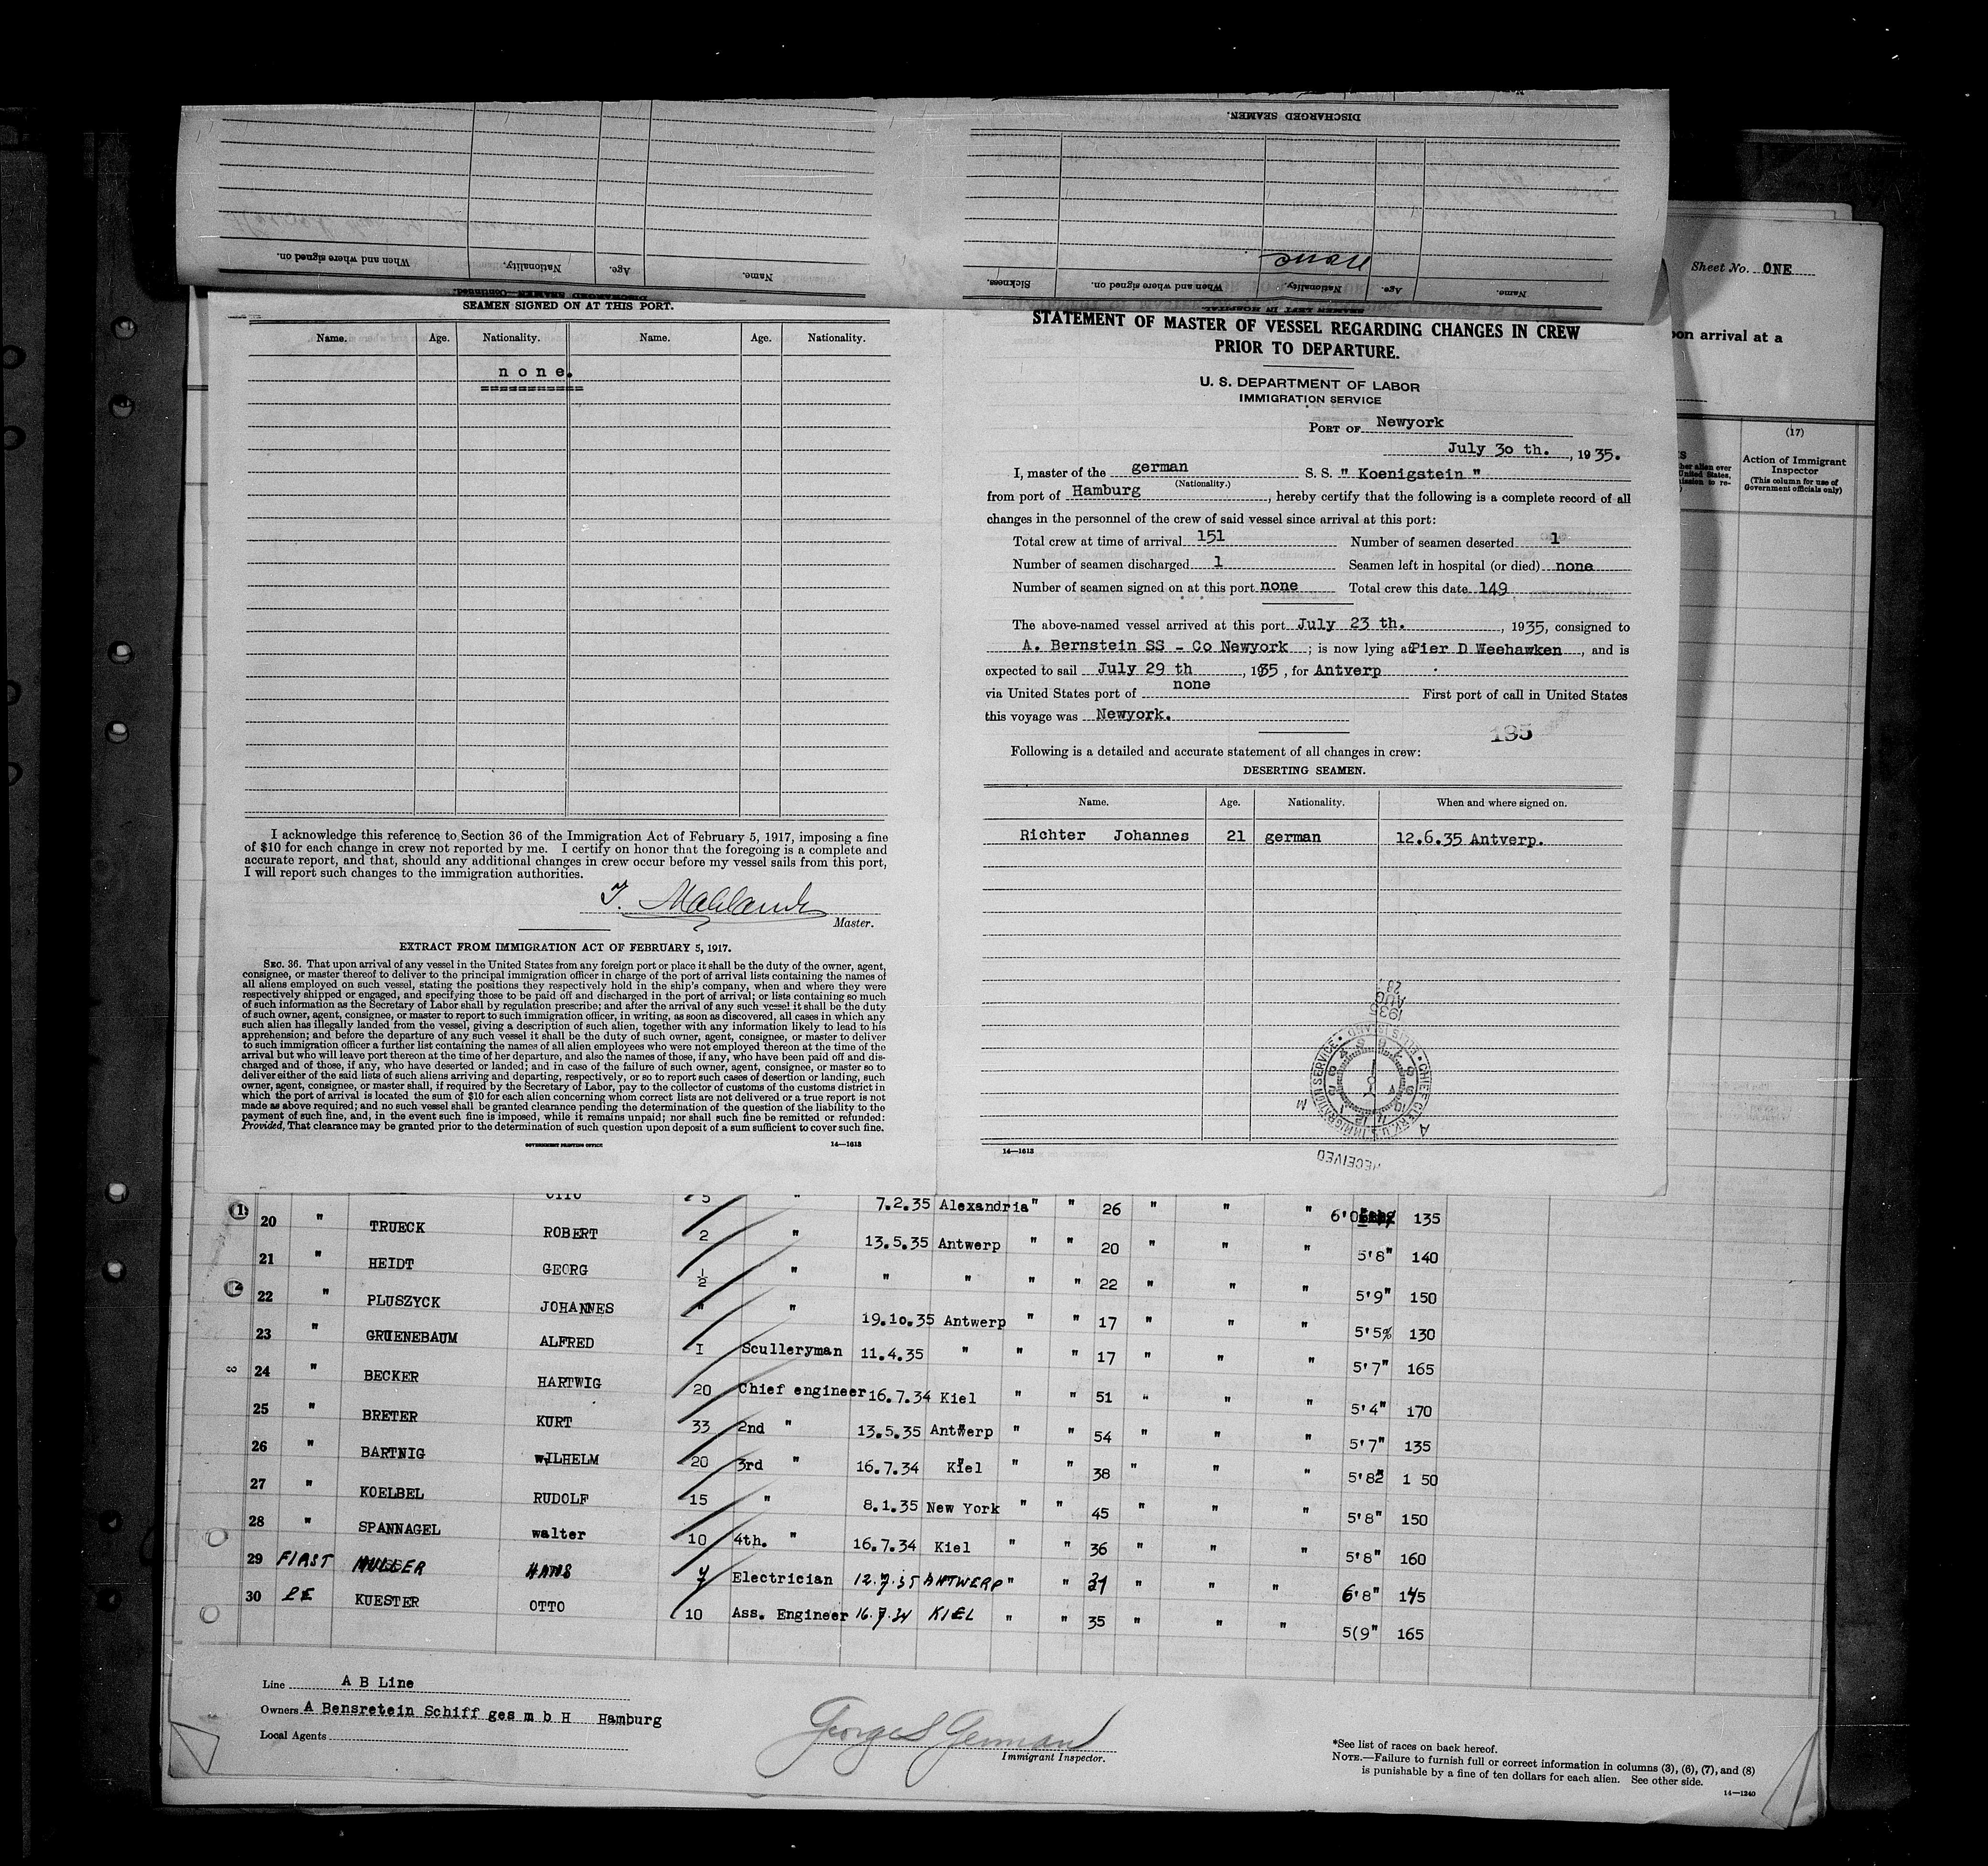 DISCHARGED SEAMEN.
When and where signed on.
Nationality.
Age.
Name.
DISCHARGED SEAMEN—Continued.
None
Sickness.
When and where signed on.
Nationality.
Age.
Name.
SEAMEN LEFT IN HOSPITAL
Sheet No. ONE
on arrival at a
(17)
Action of Immigrant
Inspector
(This column for use of
Government officials only)
SEAMEN SIGNED ON AT THIS PORT.
Name. Age. Nationality. Name. Age. Nationality.
n o n e.
===========
I acknowledge this reference to Section 36 of the Immigration Act of February 5, 1917, imposing a fine
of $10 for each change in crew not reported by me. I certify on honor that the foregoing is a complete and
accurate report, and that, should any additional changes in crew occur before my vessel sails from this port,
I will report such changes to the immigration authorities.
Master.
EXTRACT FROM IMMIGRATION ACT OF FEBRUARY 5, 1917.
SEC. 36. That upon arrival of any vessel in the United States from any foreign port or place it shall be the duty of the owner, agent,
consignee, or master thereof to deliver to the principal immigration officer in charge of the port of arrival lists containing the names of
all aliens employed on such vessel, stating the positions they respectively hold in the ship's company, when and where they were
respectively shipped or engaged, and specifying those to be paid off and discharged in the port of arrival; or lists containing so much
of such information as the Secretary of Labor shall by regulation prescribe; and after the arrival of any such vessel it shall be the duty
of such owner, agent, consignee, or master to report to such immigration officer, in writing, as soon as discovered, all cases in which any
such alien has illegally landed from the vessel, giving a description of such alien, together with any information likely to lead to his
apprehension; and before the departure of any such vessel it shall be the duty of such owner, agent, consignee, or master to deliver
to such immigration officer a further list containing the names of all alien employees who were not employed thereon at the time of the
arrival but who will leave port thereon at the time of her departure, and also the names of those, if any, who have been paid off and dis-
charged and of those, if any, who have deserted or landed; and in case of the failure of such owner, agent, consignee, or master so to
deliver either of the said lists of such aliens arriving and departing, respectively, or so to report such cases of desertion or landing, such
owner, agent, consignee, or master shall, if required by the Secretary of Labor, pay to the collector of customs of the customs district in
which the port of arrival is located the sum of $10 for each alien concerning whom correct lists are not delivered or a true report is not
made as above required; and no such vessel shall be granted clearance pending the determination of the question of the liability to the
payment of such fine, and, in the event such fine is imposed, while it remains unpaid; nor shall such fine be remitted or refunded:
Provided, That clearance may be granted prior to the determination of such question upon deposit of a sum sufficient to cover such fine.
GOVERNMENT PRINTING OFFICE 14—1613
STATEMENT OF MASTER OF VESSEL REGARDING CHANGES IN CREW
PRIOR TO DEPARTURE.
U. S. DEPARTMENT OF LABOR
IMMIGRATION SERVICE
PORT OF Newyork
July 30 th. , 1935.
I, master of the german S. S. " Koenigstein "
(Nationality.)
from port of Hamburg , hereby certify that the following is a complete record of all
changes in the personnel of the crew of said vessel since arrival at this port:
Total crew at time of arrival 151 Number of seamen deserted 1
Number of seamen discharged 1 Seamen left in hospital (or died) none
Number of seamen signed on at this port none Total crew this date 149
The above-named vessel arrived at this port July 23 th. , 1935, consigned to
A. Bernstein SS - Co Newyork ; is now lying at Pier D Weehawken , and is
expected to sail July 29 th , 1935 , for Antverp
via United States port of none First port of call in United States
this voyage was Newyork.
185
Following is a detailed and accurate statement of all changes in crew:
DESERTING SEAMEN.
Name. Age. Nationality. When and where signed on.
Richter Johannes 21 german 12.6.35 Antverp.
1935
AUG
28
CHIEF CLERK U.S. IMMIGRATION SERVICE • ELLIS ISLAND •
RECEIVED
14—1613
OTTO 5 " 7.2.35 Alexandria " " 26 " " " 6'0 135
20 " TRUECK ROBERT 2 " 13.5.35 Antwerp " " 20 " " " 5'8" 140
21 " HEIDT GEORG 1/2 " " " " " 22 " " " 5'9" 150
22 " PLUSZYCK JOHANNES " " 19.10.35 Antwerp " " 17 " " " 5'5½ 130
23 " GRUENEBAUM ALFRED I Sculleryman 11.4.35 " " " 17 " " " 5'7" 165
24 " BECKER HARTWIG 20 Chief engineer 16.7.34 Kiel " " 51 " " " 5'4" 170
25 " BRETER KURT 33 2nd " 13.5.35 Antwerp " " 54 " " " 5'7" 135
26 " BARTNIG wILHELM 20 3rd " 16.7.34 Kiel " " 38 " " " 5'82 1 50
27 " KOELBEL RUDOLF 15 " 8.1.35 New York " " 45 " " " 5'8" 150
28 " SPANNAGEL walter 10 4th. " 16.7.34 Kiel " " 36 " " " 5'8" 160
29 FIRST MULLER HANS Electrician 12.7.35 ANTWERP " " " " " 6'8" 145
30 KUESTER OTTO 10 Ass. Engineer 16.7.34 KIEL " " 35 " " " 5(9" 165
Line A B Line
Owners A Bensretein Schiff ges m b H Hamburg
Local Agents
George S German
Immigrant Inspector.
*See list of races on back hereof.
NOTE.—Failure to furnish full or correct information in columns (3), (6), (7), and (8)
is punishable by a fine of ten dollars for each alien. See other side.
14—1240